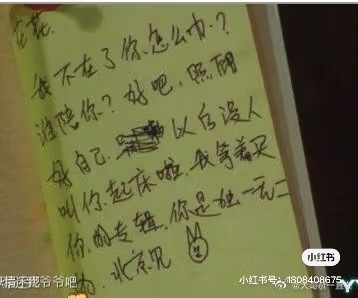 我不在了你怎么办？
谁陪你？好吧，照顾
好自己，以后没人
叫你起床啦，我等着买
你的专辑，你是独一无二
的，北京见
小红书
小红书号：1808408675
爷爷吧